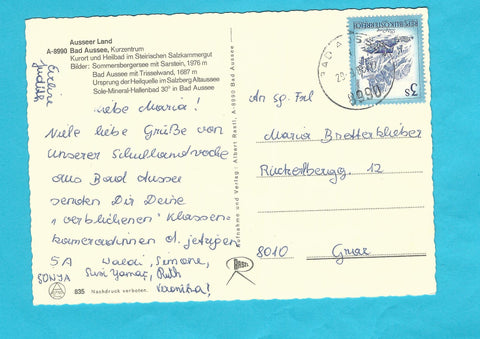 Ausseer Land
A-8990 Bad Aussee, Kurzentrum
Kurort und Heilbad im Steirischen Salzkammergut
Bilder: Sommersbergersee mit Sarstein, 1976 m
Bad Aussee mit Trisselwand, 1687 m
Ursprung der Heilquelle im Salzberg Altaussee
Sole-Mineral-Hallenbad 30° in Bad Aussee
Liebe Maria!
Viele liebe Grüße von
unserer Schullandwoche
aus Bad Aussee
senden Dir Deine
"verblichenen" Klassen-
kameradinnen d. jetzigen
5A Waldi, Simone,
SONJA Susi Ruth
Veronika!
Judith
835 Nachdruck verboten.
Aufnahme und Verlag: Albert Rastl, A-8990 Bad Aussee
RASTL
REPUBLIK ÖSTERREICH
3 S
8990
An sg. Frl
Maria Bretterklieber
Rückerlbergg. 12
8010 Graz